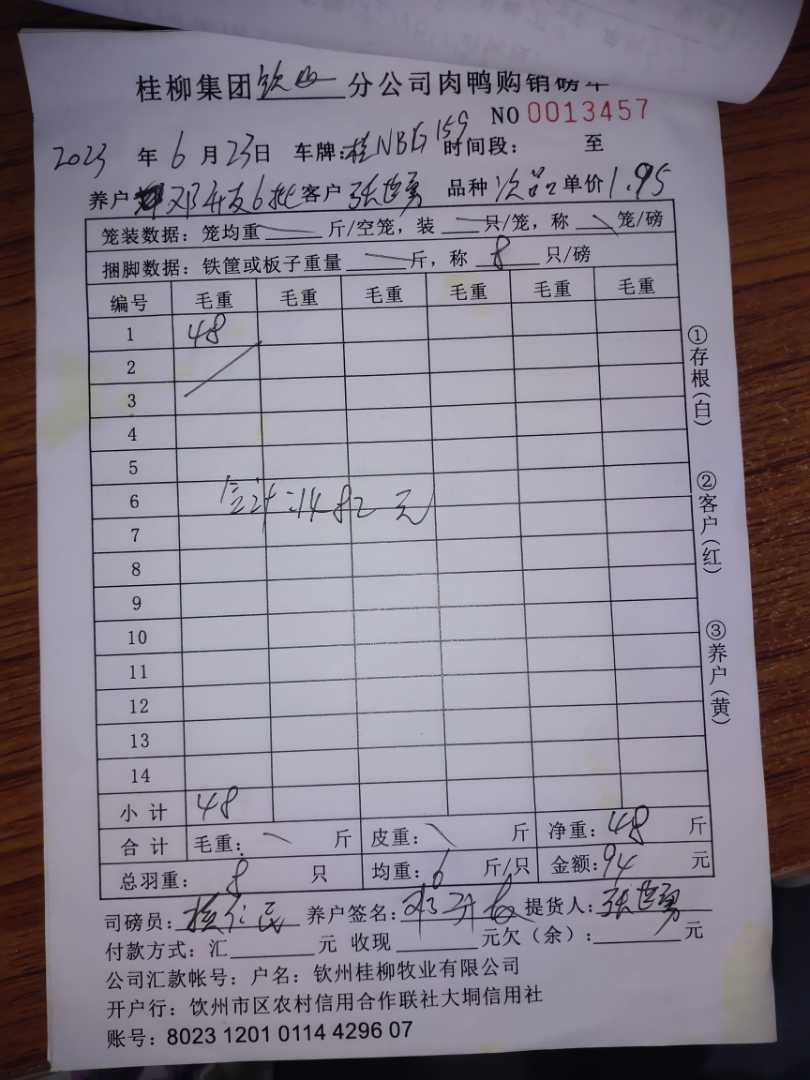 桂柳集团钦州分公司肉鸭购销磅单
NO 0013457
2023年6月23日 车牌:桂NBG159 时间段: 至
养户 邓开友6批 客户 张世勇 品种 次品 单价 1.95
笼装数据：笼均重 斤/空笼，装 只/笼，称 笼/磅
捆脚数据：铁筐或板子重量 斤，称 8 只/磅
编号 毛重 毛重 毛重 毛重 毛重 毛重
1 48
2
3
4
5
6
合计:1482元
7
8
9
10
11
12
13
14
小计 48
合计 毛重: 斤 皮重: 斤 净重:48斤
总羽重: 8 只 均重: 6 斤/只 金额:94元
司磅员: 养户签名: 邓开友 提货人:张世勇
付款方式：汇 元 收现 元欠（余）: 元
公司汇款帐号：户名：钦州桂柳牧业有限公司
开户行：饮州市区农村信用合作联社大垌信用社
账号：8023 1201 0114 4296 07
①存根(白)
②客户(红)
③养户(黄)